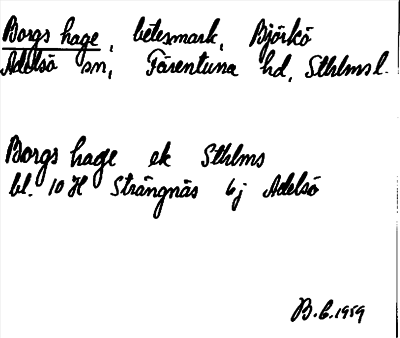 Borgs hage, betesmark, Björkö
Adelsö sn, Färentuna hd, Sthlms l.
Borgs hage ek Sthlms
bl. 10 H Strängnäs 6j Adelsö
B. C. 1959